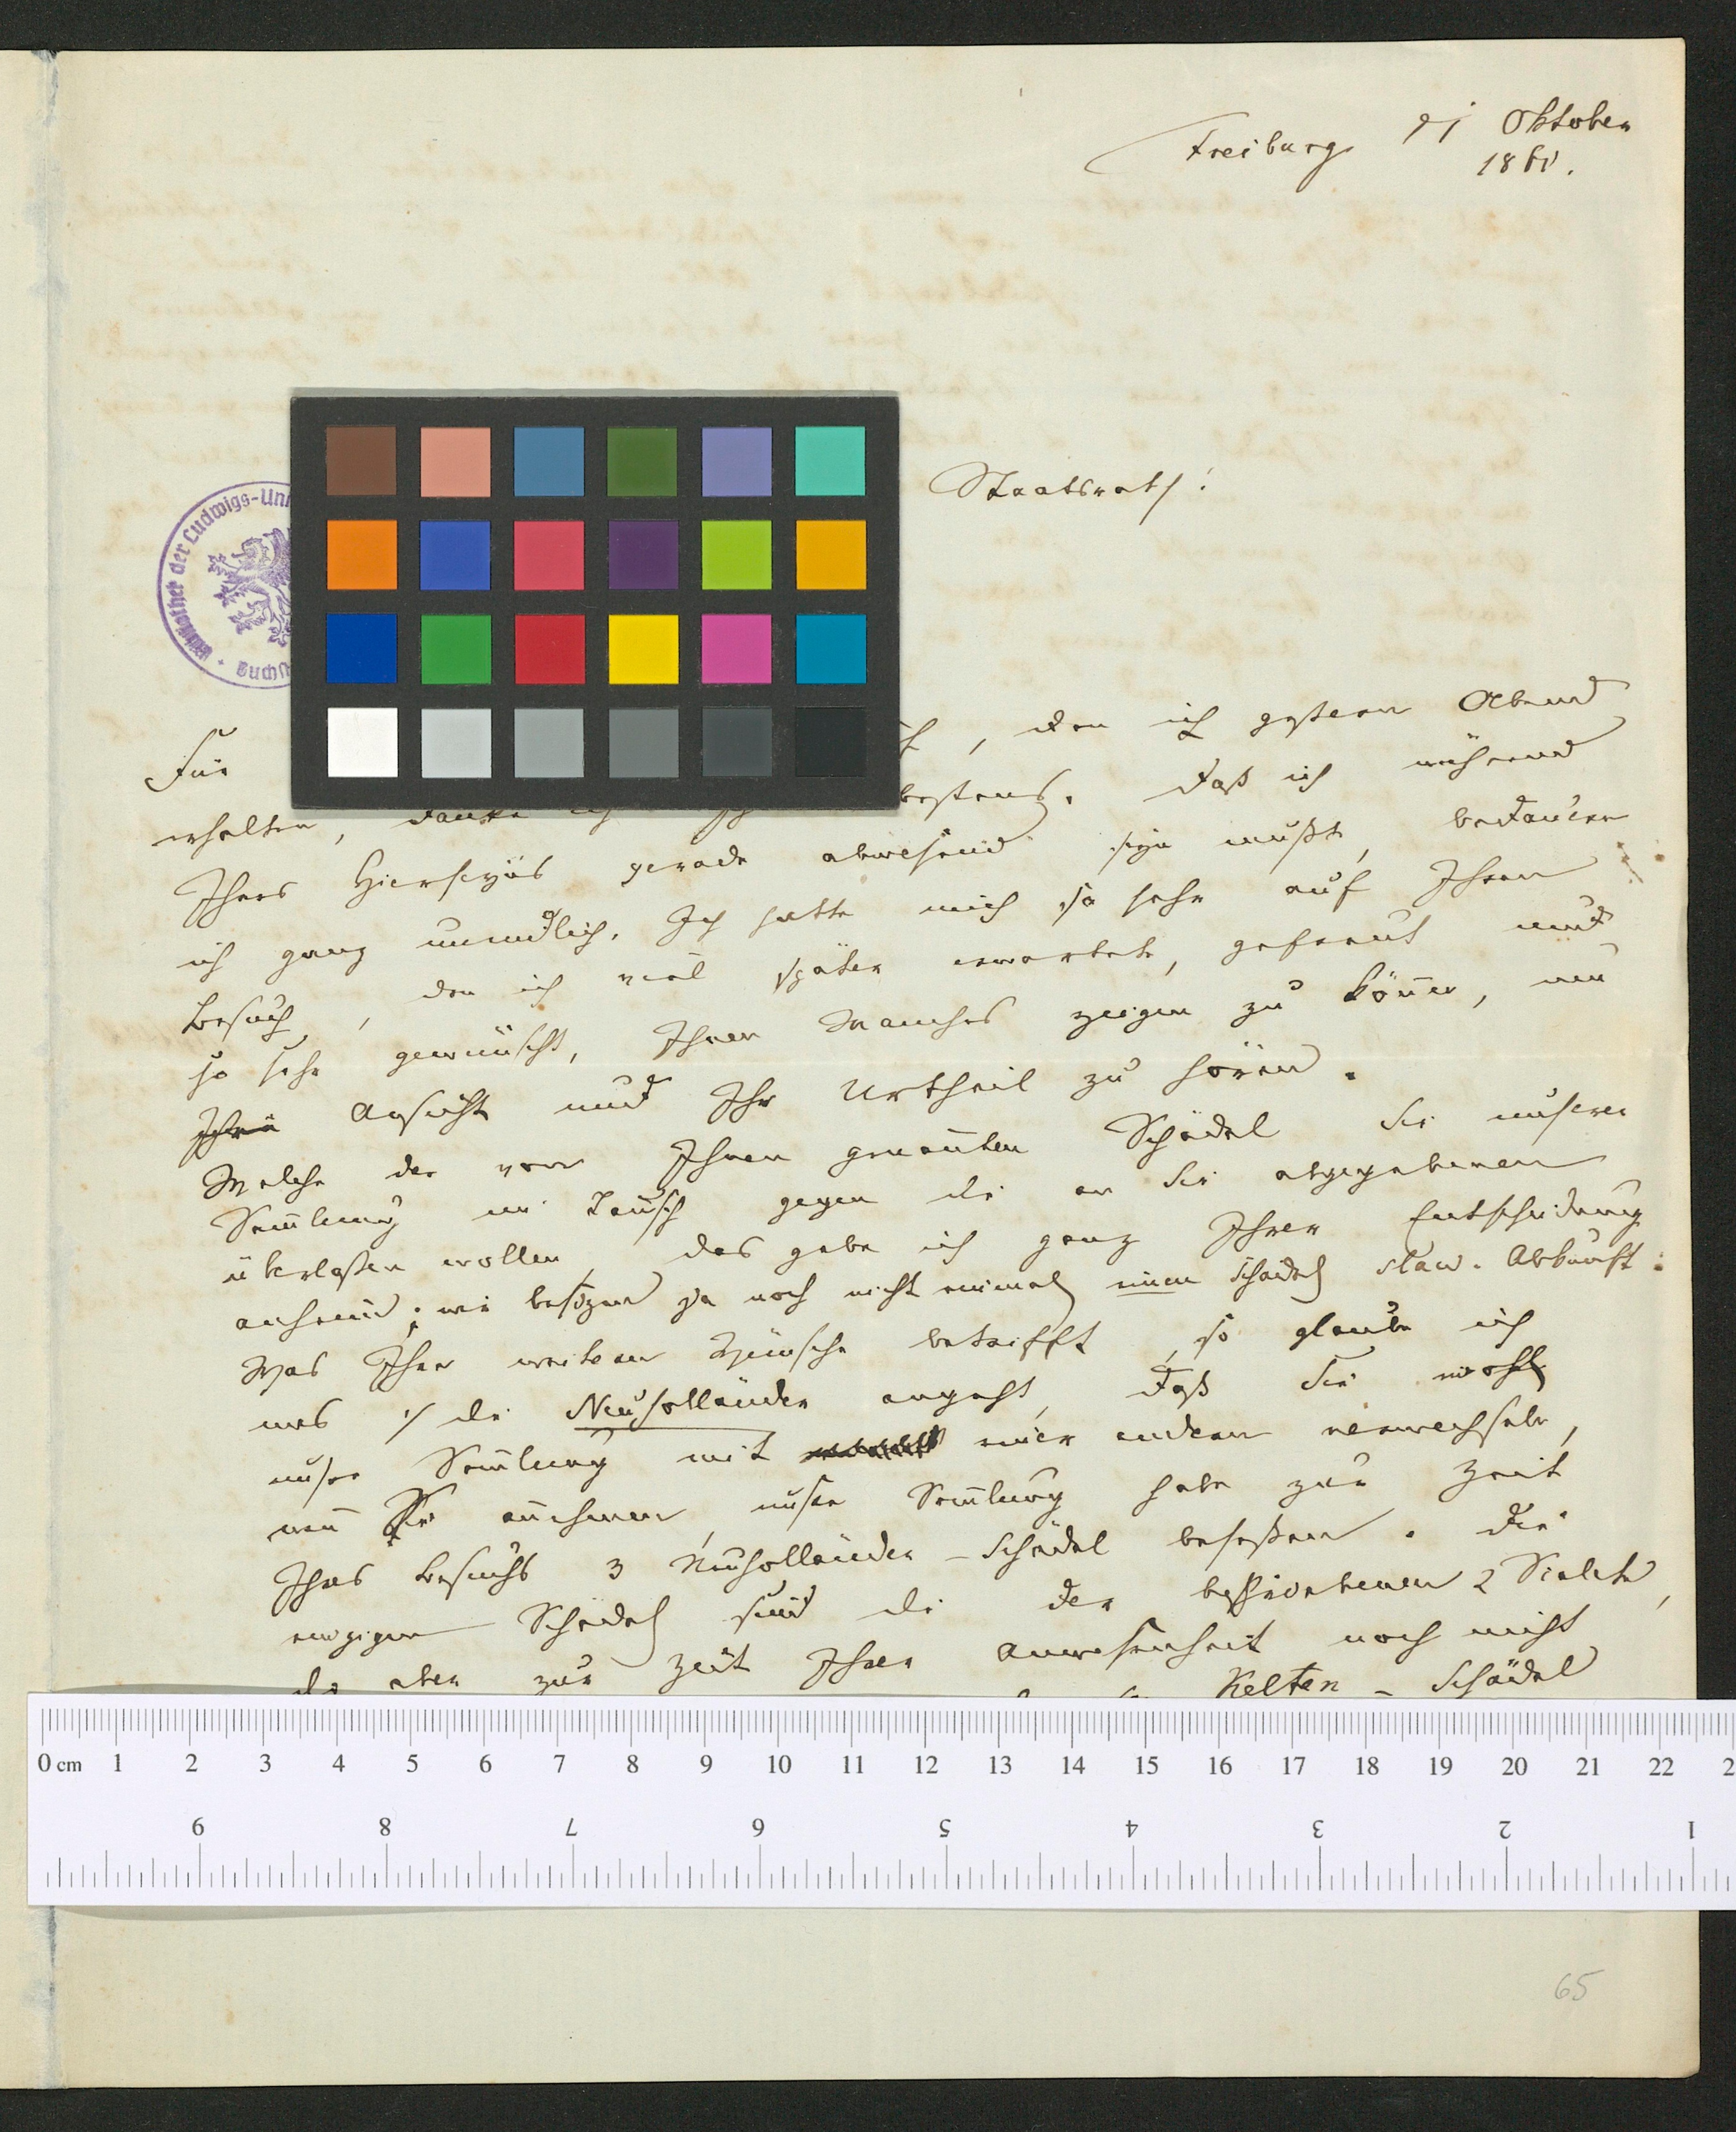 Freiburg 21 Oktober
1860.
Staatsrath!
Bibliothek der Ludwigs-Uni
Für , den ich gestern Abend
erhalten, danke ich bestens. Daß ich während
Ihres Hierseyns gerade abwesend seyn mußte, bedauere
ich ganz unendlich. Ich hatte mich so sehr auf Ihren
Besuch, den ich viel später erwartete, gefreut und
so sehr gewünscht, Ihnen Manches zeigen zu können, um
Ihre Ansicht und Ihr Urtheil zu hören.
Welche der von Ihnen genannten Schädel Sie unserer
Sammlung im Tausch gegen die an Sie abgegebenen
überlaßen wollen, das gebe ich ganz Ihrer Entscheidung
anheim; wir besitzen ja noch nicht einmal einen Schädel slaw. Abkunft.
Was Ihre weiteren Wünsche betrifft, so glaube ich
was 1/ die Neuholländer angeht, daß Sie wohl
unsre Sammlung mit einer anderen verwechseln,
wenn Sie annehmen, unsre Sammlung habe zur Zeit
Ihres Besuchs 3 Neuholländer-Schädel beseßen. Die
einzigen Schädel sind die der 2 Skelete,
die aber zur Zeit Ihrer Anwesenheit noch nicht
Kelten-Schädel
0 cm 1 2 3 4 5 6 7 8 9 10 11 12 13 14 15 16 17 18 19 20 21 22 2
9 8 7 6 5 4 3 2 1
65